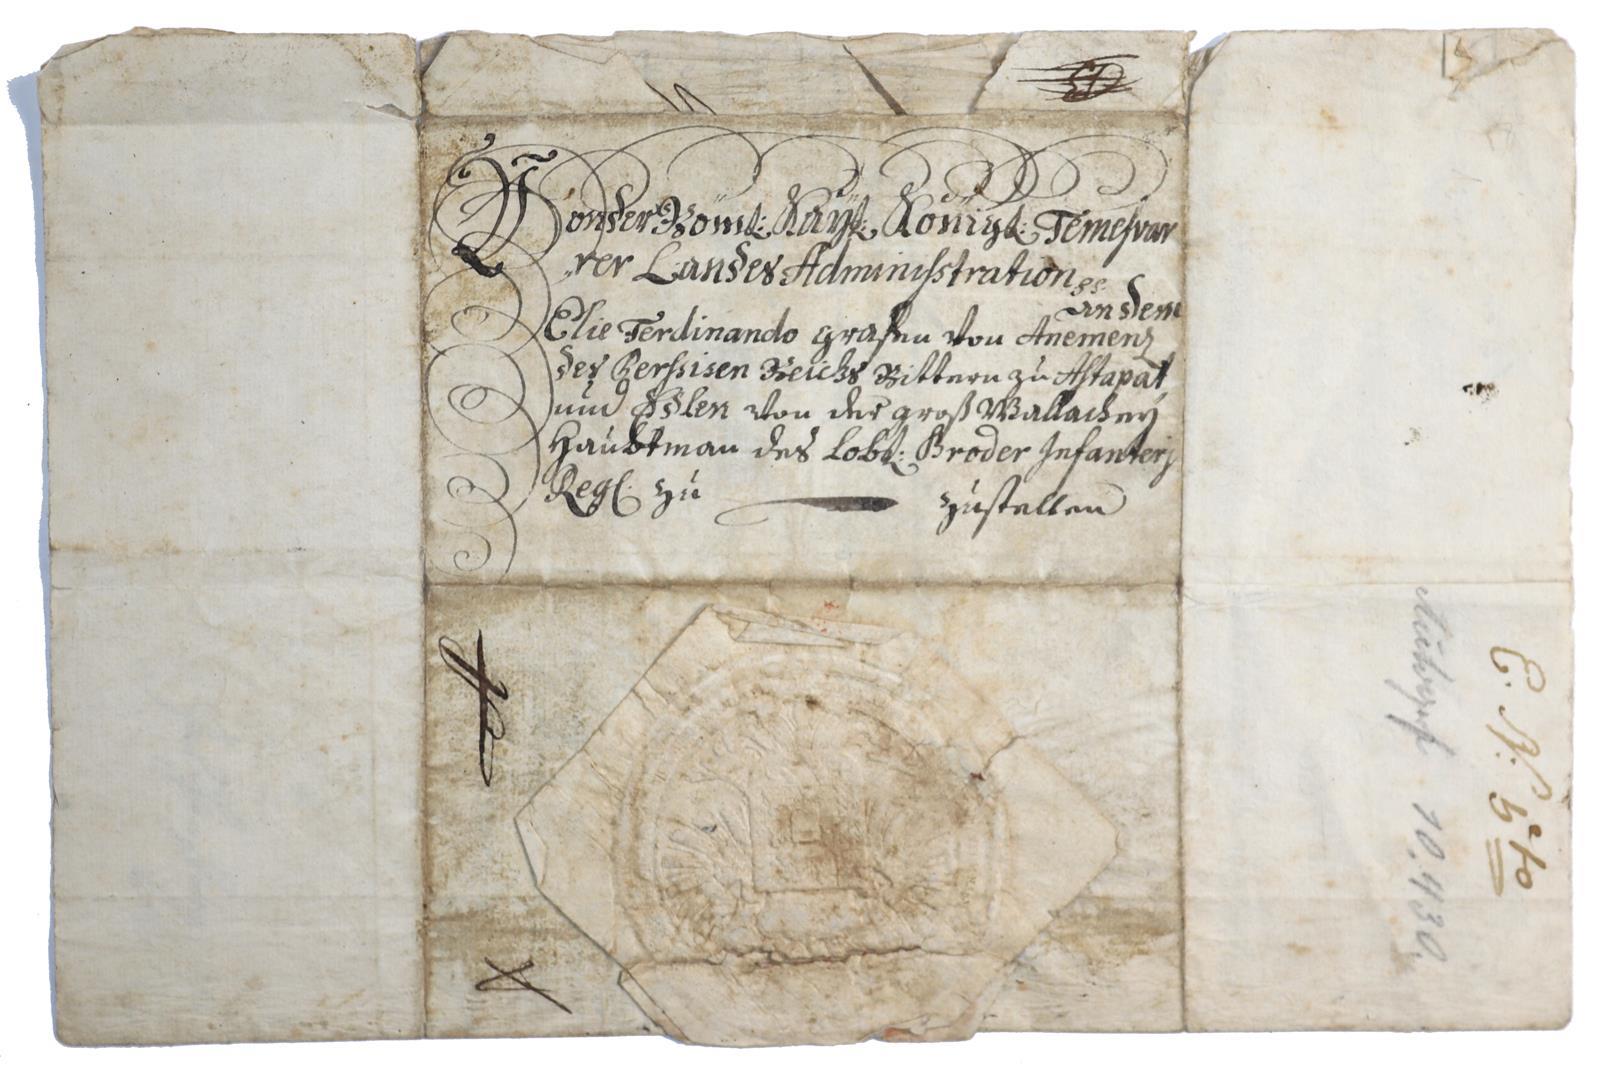 Von der Röml: Kayl: Königl: Temesvar
rer Landes Administration
an dem
Elie Ferdinando grafen von Anemenz
des Persisen Reichs Rittern zu Astapat
und Edlen von der groß Wallachey
Haubtman des Lobl: Broder Infanterj
Regl. zu zustellen
10.430.